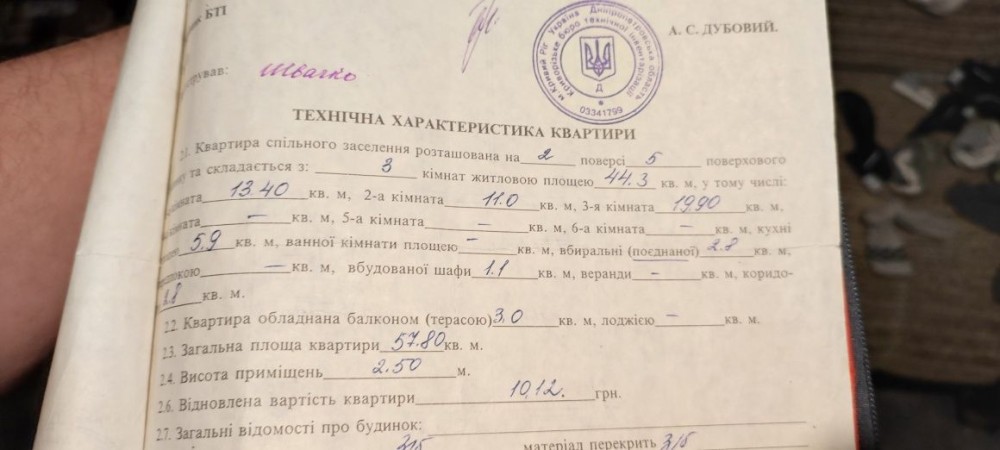 БТІ
А. С. ДУБОВИЙ.
Швачко
м. Кривий Ріг Україна Дніпропетровська область
Криворізьке бюро технічної інвентаризації
Д
03341799
ТЕХНІЧНА ХАРАКТЕРИСТИКА КВАРТИРИ
2.1. Квартира спільного заселення розташована на 2 поверсі 5 поверхового
та складається з: 3 кімнат житловою площею 44.3 кв. м, у тому числі:
13.40 кв. м, 2-а кімната 11.0 кв. м, 3-я кімната 19.90 кв. м,
— кв. м, 5-а кімната — кв. м, 6-а кімната — кв. м, кухні
5.9 кв. м, ванної кімнати площею — кв. м, вбиральні (поєднаної) 2.8 кв. м,
— кв. м, вбудованої шафи 1.1 кв. м, веранди — кв. м, коридо-
кв. м.
2.2. Квартира обладнана балконом (терасою) 3.0 кв. м, лоджією — кв. м.
2.3. Загальна площа квартири 57.80 кв. м.
2.4. Висота приміщень 2.50 м.
2.6. Відновлена вартість квартири 10,12. грн.
2.7. Загальні відомості про будинок:
з/б матеріал перекрить з/б